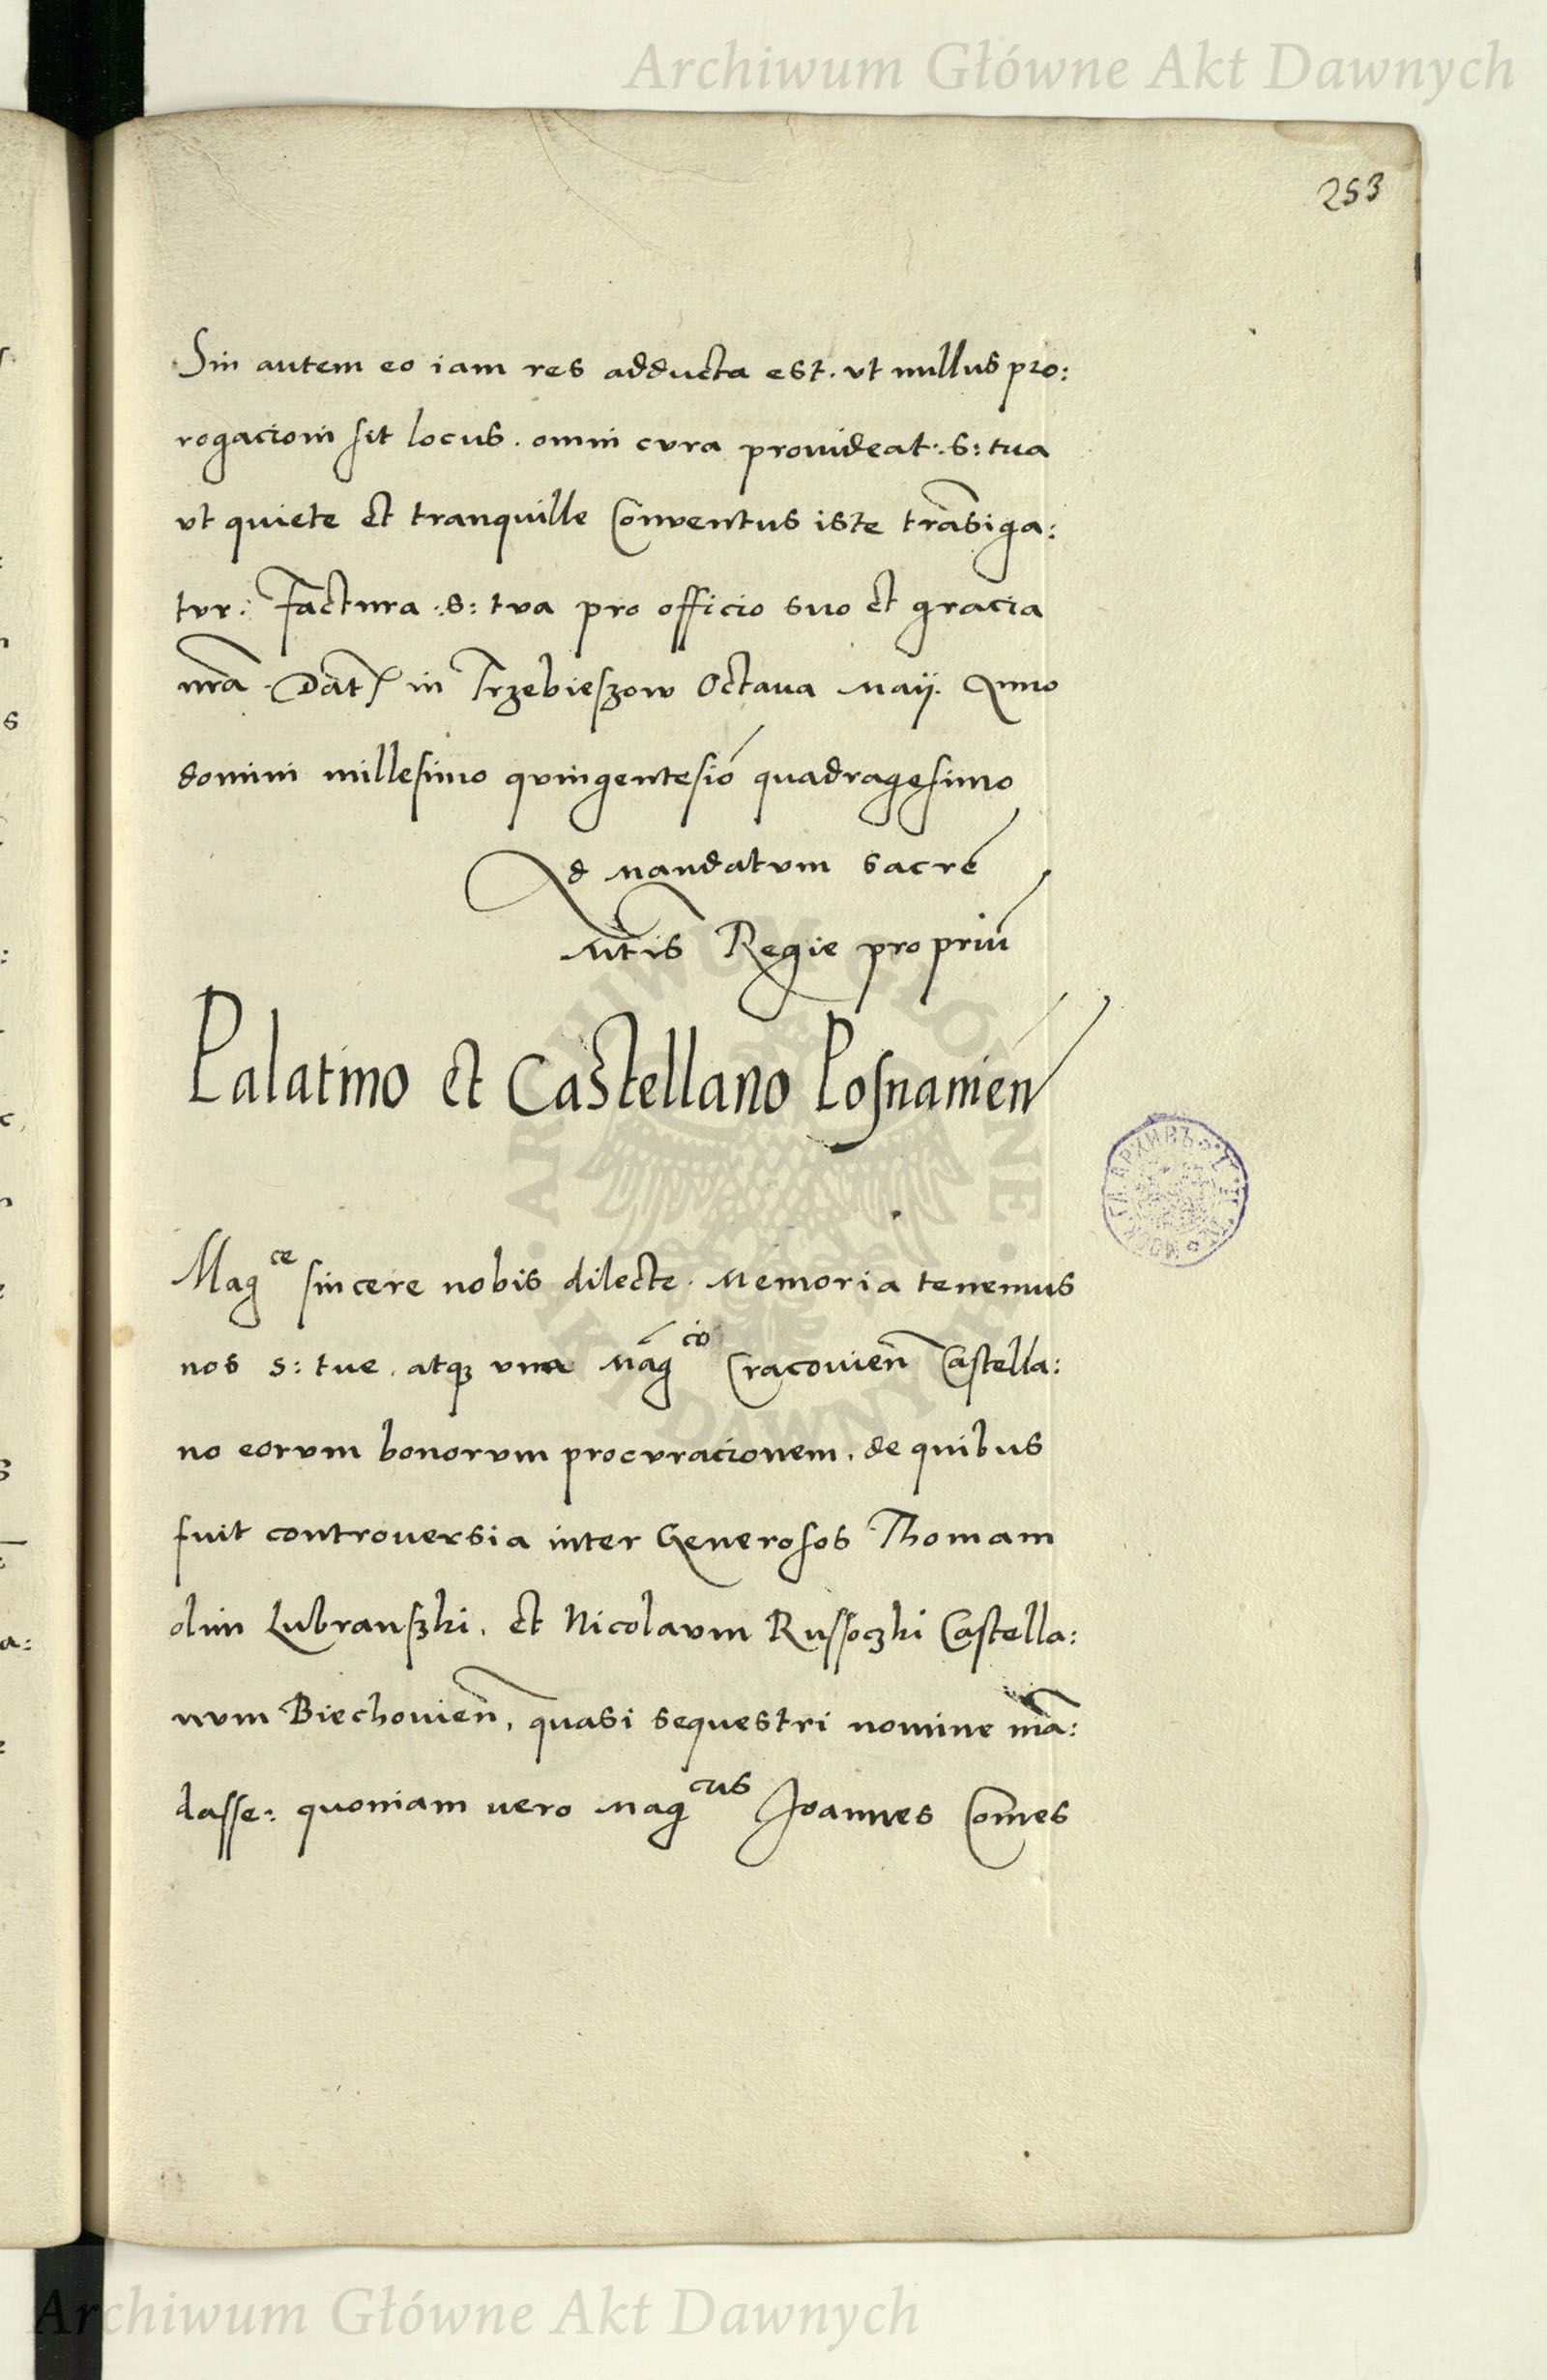 Archiwum Główne Akt Dawnych
253
Sin autem eo iam res adducta est. vt nullus pro:
rogacioni sit locus. omni cvra prouideat .s: tua
vt quiete et tranquille Conventus iste trāsiga:
tvr: Factura .s: tva pro officio suo et gracia
nr̄a. Dat̄ in Trzebieszow Octaua Maij. Anno
domini millesimo qvingentesiō quadragesimo
Ad Mandatvm sacre
Mt̄is Regie propriū
Palatino et Castellano Posnanień
Mag^ce sincere nobis dilecte. Memoria tenemus
nos s: tue. atq; vna Mag^co Cracovien̄ Castella:
no eorvm bonorvm procvracionem. de quibus
fuit controuersia inter Generosos Thomam
olim Lubranszki. et Nicolavm Russoczki Castella:
nvm Biechouien̄, quasi sequestri nomine mā:
dasse: quoniam uero Mag^cus Joannes Comes
Archiwum Główne Akt Dawnych